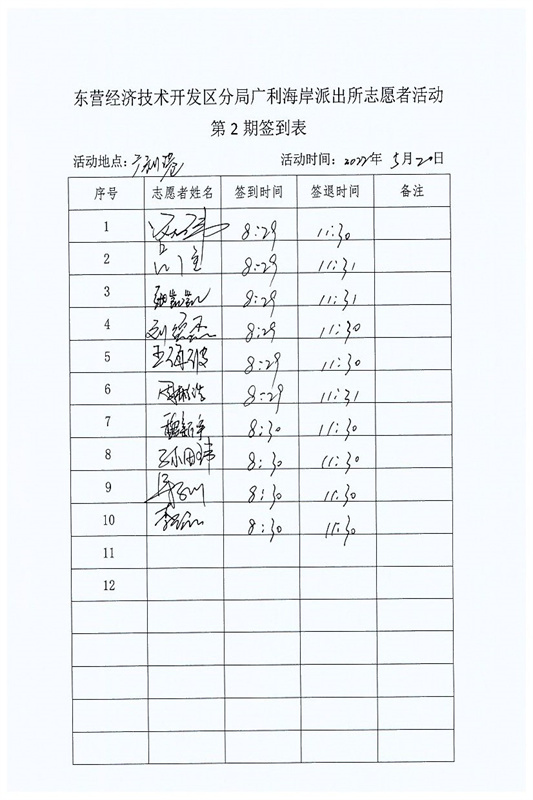 东营经济技术开发区分局广利海岸派出所志愿者活动
第 2 期签到表
活动地点：广利港 活动时间：2022年 5月20日
序号 志愿者姓名 签到时间 签退时间 备注
1 8:29 11:30
2 8:29 11:31
3 8:29 11:31
4 刘 杰 8:29 11:30
5 王 波 8:29 11:30
6 周 浩 8:29 11:31
7 魏新 8:30 11:30
8 王小田 8:30 11:30
9 8:30 11:30
10 李 8:30 11:30
11
12